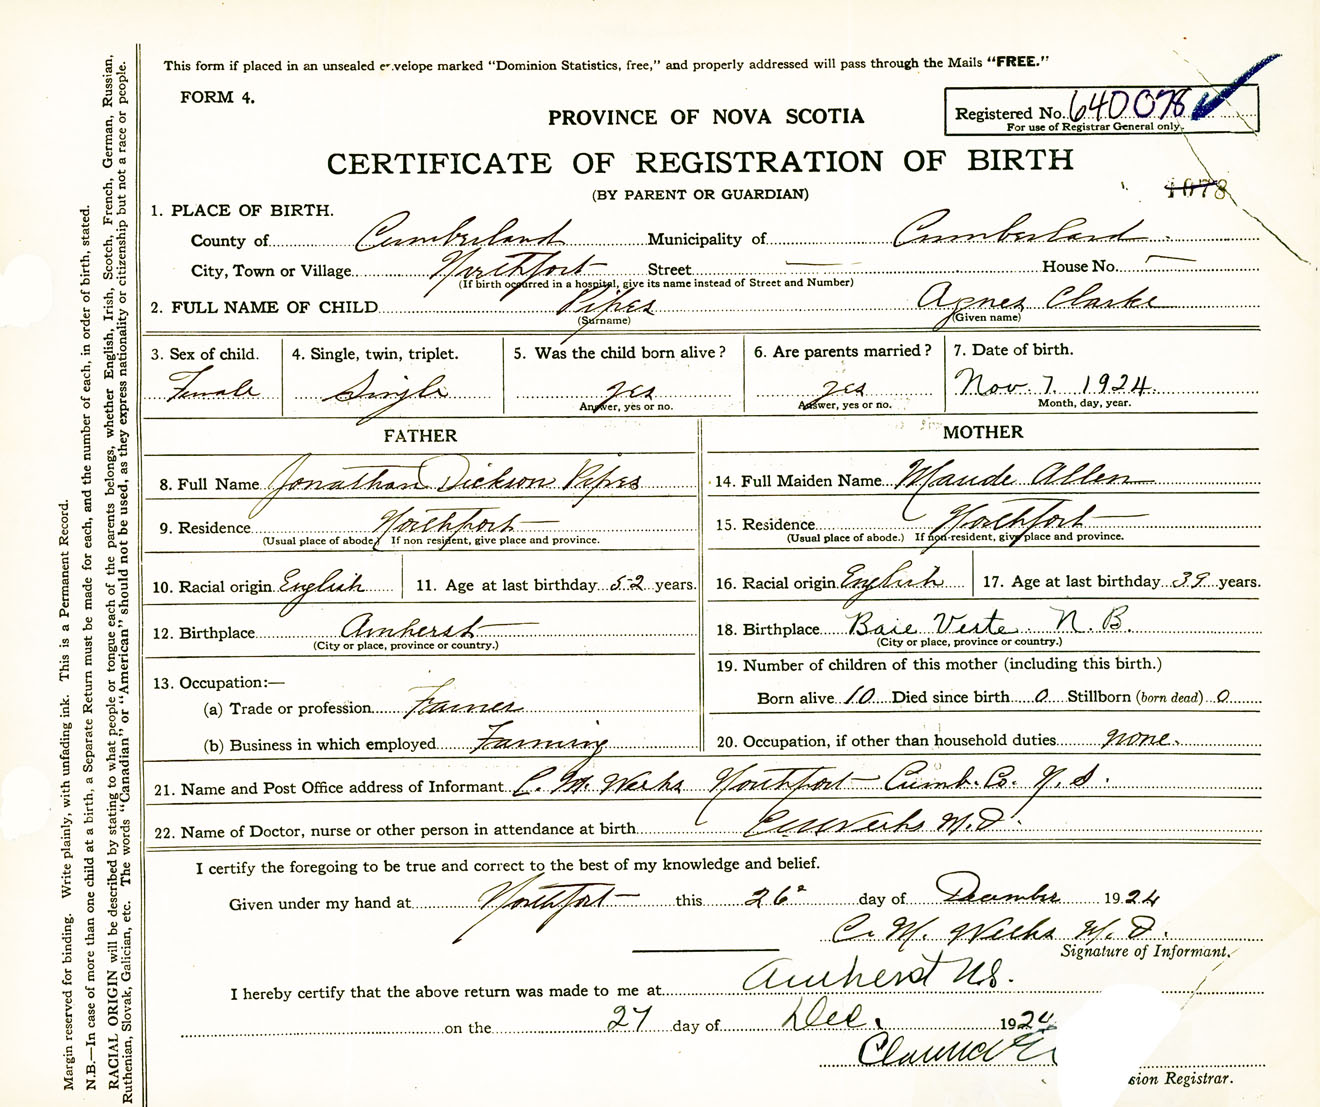 This form if placed in an unsealed envelope marked "Dominion Statistics, free," and properly addressed will pass through the Mails "FREE."
FORM 4.
PROVINCE OF NOVA SCOTIA
Registered No. 640078
For use of Registrar General only.
CERTIFICATE OF REGISTRATION OF BIRTH
(BY PARENT OR GUARDIAN)
1078
1. PLACE OF BIRTH.
County of Cumberland Municipality of Cumberland
City, Town or Village Northport Street — House No. —
(If birth occurred in a hospital, give its name instead of Street and Number)
2. FULL NAME OF CHILD Pipes Agnes Clarke
(Surname) (Given name)
3. Sex of child. 4. Single, twin, triplet. 5. Was the child born alive? 6. Are parents married? 7. Date of birth.
Female Single yes yes Nov. 7. 1924.
Answer, yes or no. Answer, yes or no. Month, day, year.
FATHER MOTHER
8. Full Name Jonathan Dickson Pipes
9. Residence Northport
(Usual place of abode.) If non resident, give place and province.
10. Racial origin English 11. Age at last birthday 52 years.
12. Birthplace Amherst
(City or place, province or country.)
13. Occupation:—
(a) Trade or profession Farmer
(b) Business in which employed Farming
14. Full Maiden Name Maude Allen
15. Residence Northport
(Usual place of abode.) If non-resident, give place and province.
16. Racial origin English 17. Age at last birthday 39 years.
18. Birthplace Baie Verte N. B.
(City or place, province or country.)
19. Number of children of this mother (including this birth.)
Born alive 10 Died since birth 0 Stillborn (born dead) 0
20. Occupation, if other than household duties none.
21. Name and Post Office address of Informant C. M. Weeks Northport Cumb. Co. N. S.
22. Name of Doctor, nurse or other person in attendance at birth C M Weeks M. D.
I certify the foregoing to be true and correct to the best of my knowledge and belief.
Given under my hand at Northport this 26 day of December 1924
C. M. Weeks M. D.
Signature of Informant.
I hereby certify that the above return was made to me at Amherst N.S.
on the 27 day of Dec. 1924
Clarence E
sion Registrar.
Margin reserved for binding. Write plainly, with unfading ink. This is a Permanent Record.
N.B.—In case of more than one child at a birth, a Separate Return must be made for each, and the number of each, in order of birth, stated.
RACIAL ORIGIN will be described by stating to what people or tongue each of the parents belongs, whether English, Irish, Scotch, French, German, Russian,
Ruthenian, Slovak, Galician, etc. The words "Canadian" or "American" should not be used, as they express nationality or citizenship but not a race or people.